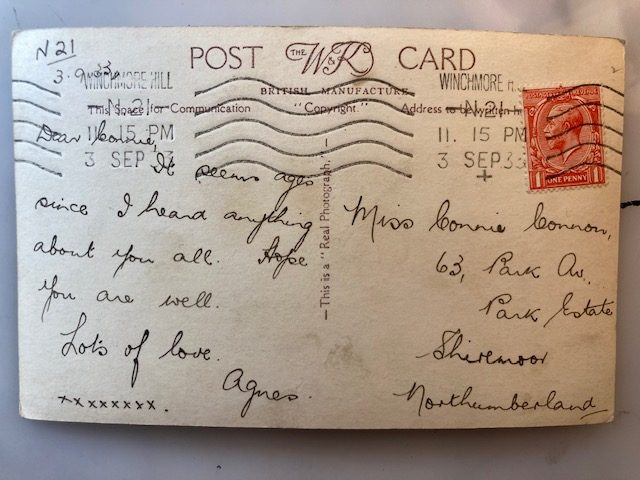 N 21
3.9.33
POST THE W&K CARD
WINCHMORE HILL
N.21
11.15 PM
3 SEP 33
BRITISH MANUFACTURE
This Space for Communication "Copyright." Address to be written h
WINCHMORE H
N.21
11.15 PM
3 SEP 33
POSTAGE REVENUE
1 ONE PENNY 1
—This is a "Real Photograph."—
Dear Connie,
It seems ages
since I heard anything
about you all. Hope
you are well.
Lots of love.
Agnes.
xxxxxxxx.
Miss Connie Connon,
63, Park Av.
Park Estate
Shiremoor
Northumberland